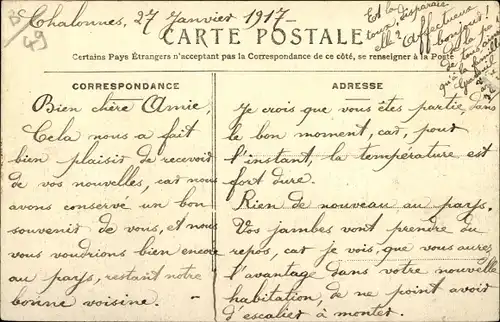 Bc
49
Chalonnes, 27 Janvier 1917 -
CARTE POSTALE
Certains Pays Étrangers n'acceptent pas la Correspondance de ce côté, se renseigner à la Poste
CORRESPONDANCE
Bien chère Amie,
Cela nous a fait
bien plaisir de recevoir
de vos nouvelles, car nous
avons conservé un bon
souvenir de vous, et nous
vous voudrions bien encore
au pays, restant notre
bonne voisine.
ADRESSE
Je crois que vous êtes partie dans
le bon moment, car, pour
l'instant, la température est
fort dure.
Rien de nouveau au pays.
Vos jambes vont prendre du
repos, car je vois, que vous aurez
l'avantage dans votre nouvelle
habitation, de ne point avoir
d'escalier à monter.
Et la
toux, disparaît-
elle ? Affectueux
bonjours !
de tous ainsi
la famille